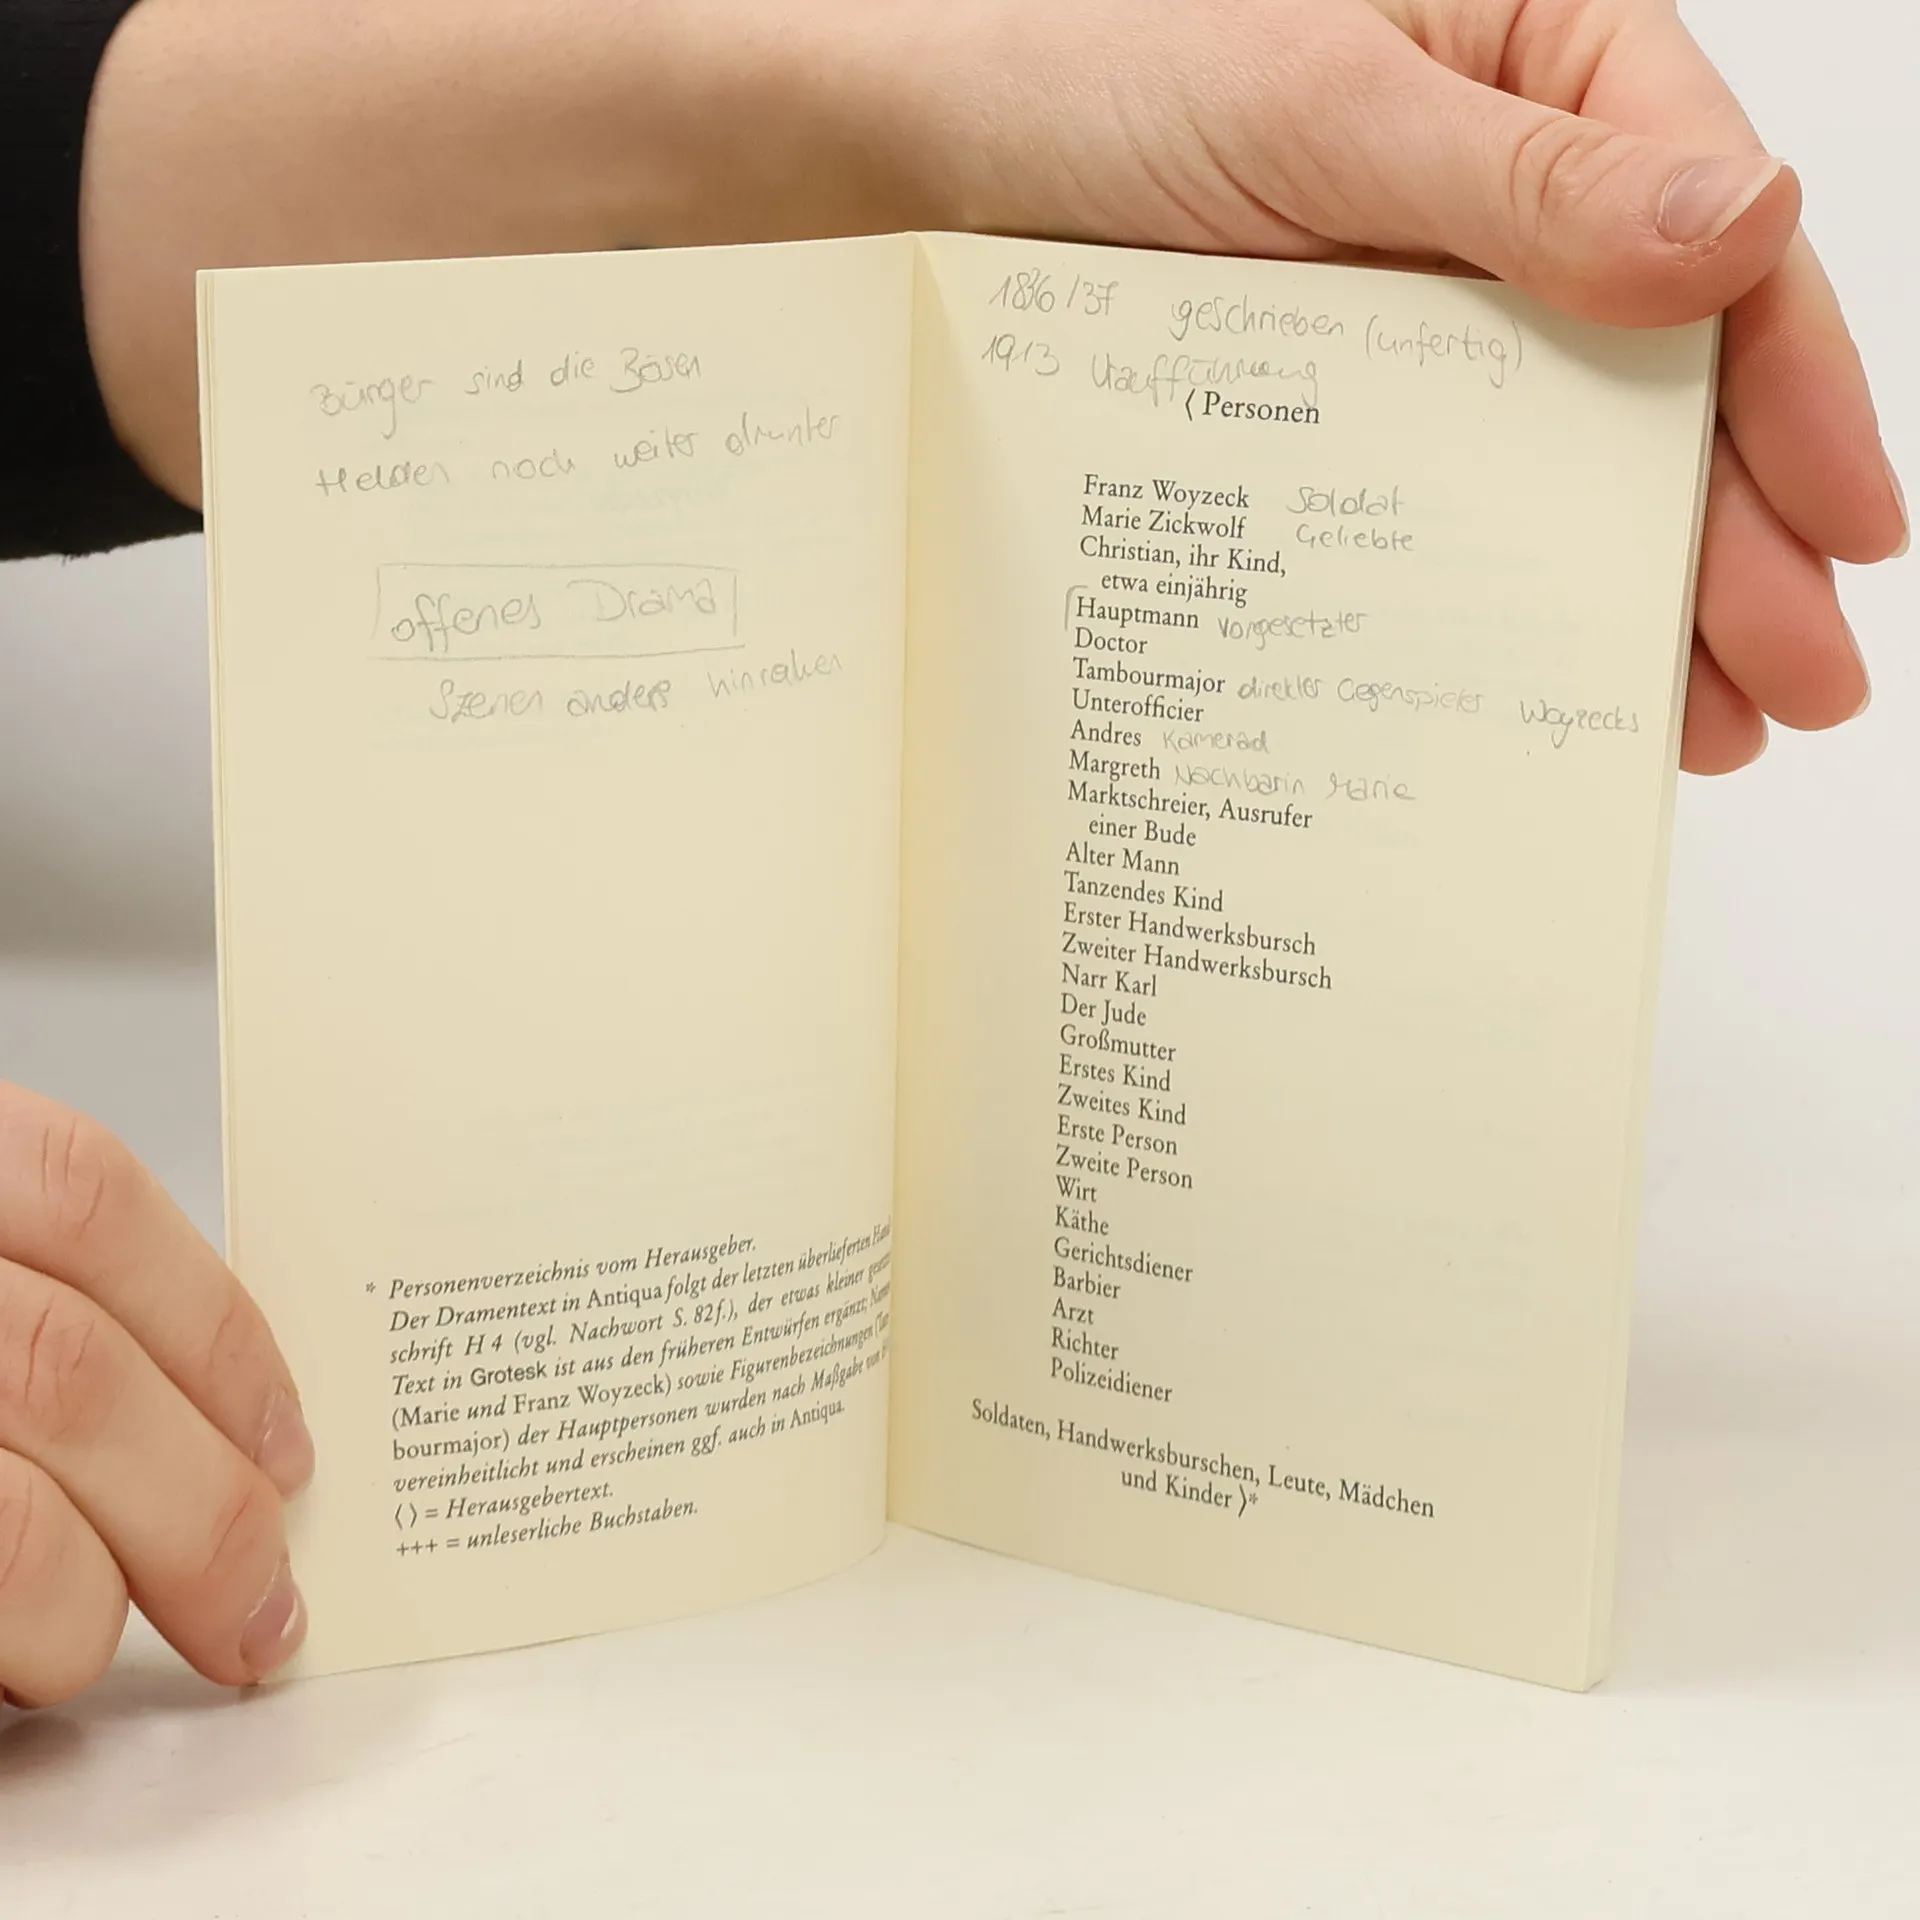 Bürger sind die Bösen
Helden noch weiter drunter
offenes Drama
Szenen anders
* Personenverzeichnis vom Herausgeber.
Der Dramentext in Antiqua folgt der letzten überlieferten Hand
schrift H 4 (vgl. Nachwort S. 82f.), der etwas kleiner gesetzte
Text in Grotesk ist aus den früheren Entwürfen ergänzt; Namen
(Marie und Franz Woyzeck) sowie Figurenbezeichnungen (Tam
bourmajor) der Hauptpersonen wurden nach Maßgabe von
vereinheitlicht und erscheinen ggf. auch in Antiqua.
⟨ ⟩ = Herausgebertext.
+++ = unleserliche Buchstaben.
1836/37 geschrieben (unfertig)
1913 Uraufführung
⟨ Personen
Franz Woyzeck Soldat
Marie Zickwolf Geliebte
Christian, ihr Kind,
etwa einjährig
Hauptmann Vorgesetzter
Doctor
Tambourmajor direkter Gegenspieler Woyzecks
Unterofficier
Andres Kamerad
Margreth Nachbarin Marie
Marktschreier, Ausrufer
einer Bude
Alter Mann
Tanzendes Kind
Erster Handwerksbursch
Zweiter Handwerksbursch
Narr Karl
Der Jude
Großmutter
Erstes Kind
Zweites Kind
Erste Person
Zweite Person
Wirt
Käthe
Gerichtsdiener
Barbier
Arzt
Richter
Polizeidiener
Soldaten, Handwerksburschen, Leute, Mädchen
und Kinder ⟩*